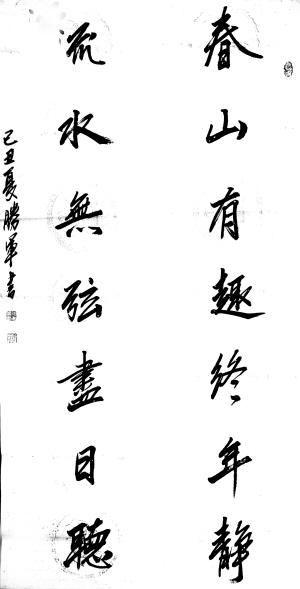 春山有趣終年静
流水無弦盡日聽
己丑夏勝軍書